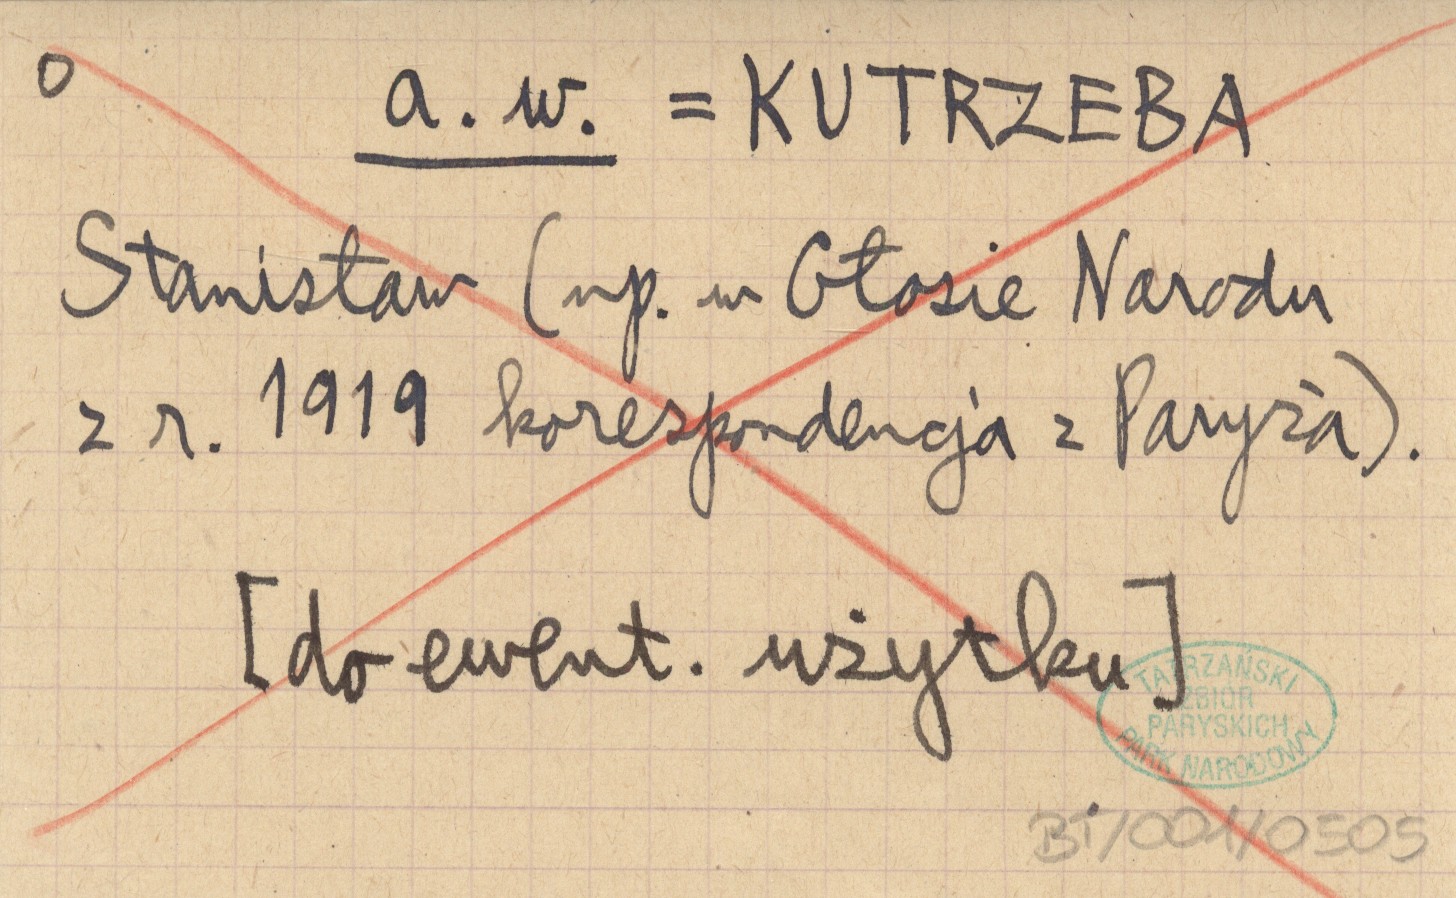 o a. w. = KUTRZEBA
Stanisław (np. w Głosie Narodu
z r. 1919 korespondencja z Paryża).
[do ewent. użytku]
TATRZAŃSKI
ZBIÓR
PARYSKICH
PARK NARODOWY
BT/001/0505